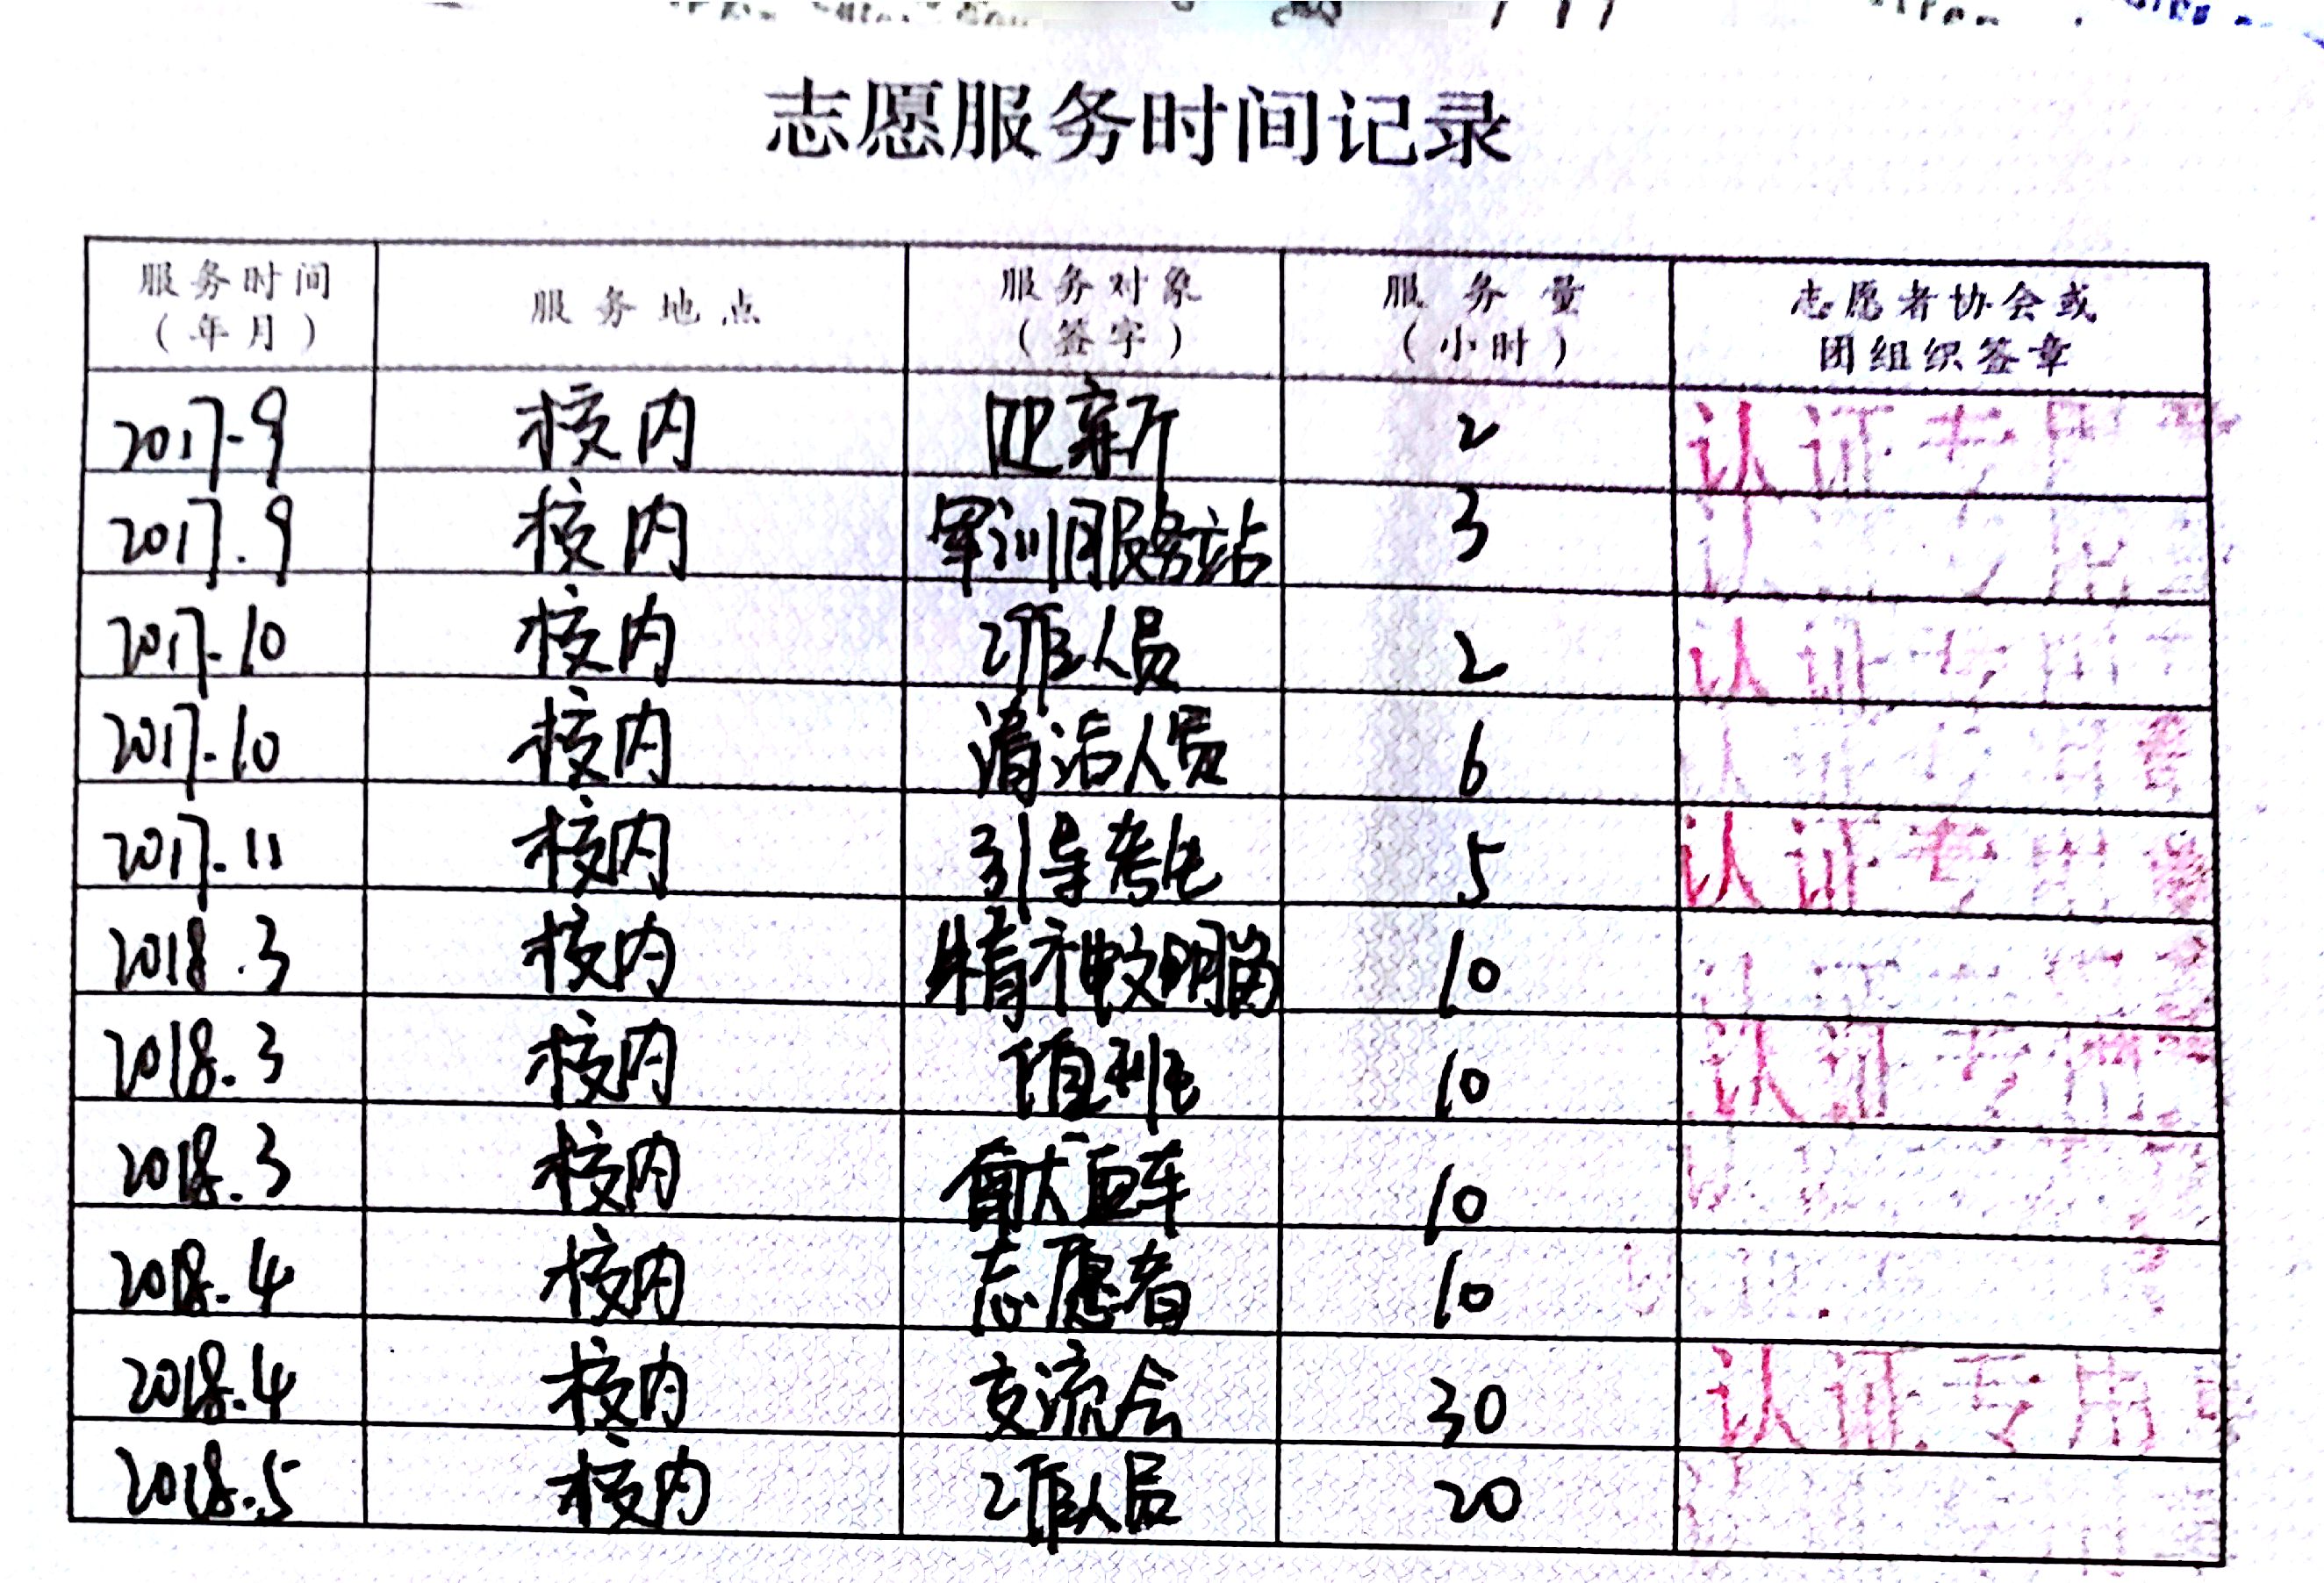 志愿服务时间记录
服务时间
(年月)
服务地点
服务对象
(签字)
服务量
(小时)
志愿者协会或
团组织签章
2017.9 校内 迎新 2 认证专用章
2017.9 校内 军训服务站 3
2017.10 校内 工作人员 2 认证专用
2017.10 校内 清洁人员 6 认证专用章
2017.11 校内 引导考生 5 认证专用章
2018.3 校内 精神文明岗 10
2018.3 校内 值班 10 认证专用章
2018.3 校内 献血车 10
2018.4 校内 志愿者 10
2018.4 校内 交流会 30 认证专用
2018.5 校内 工作人员 20